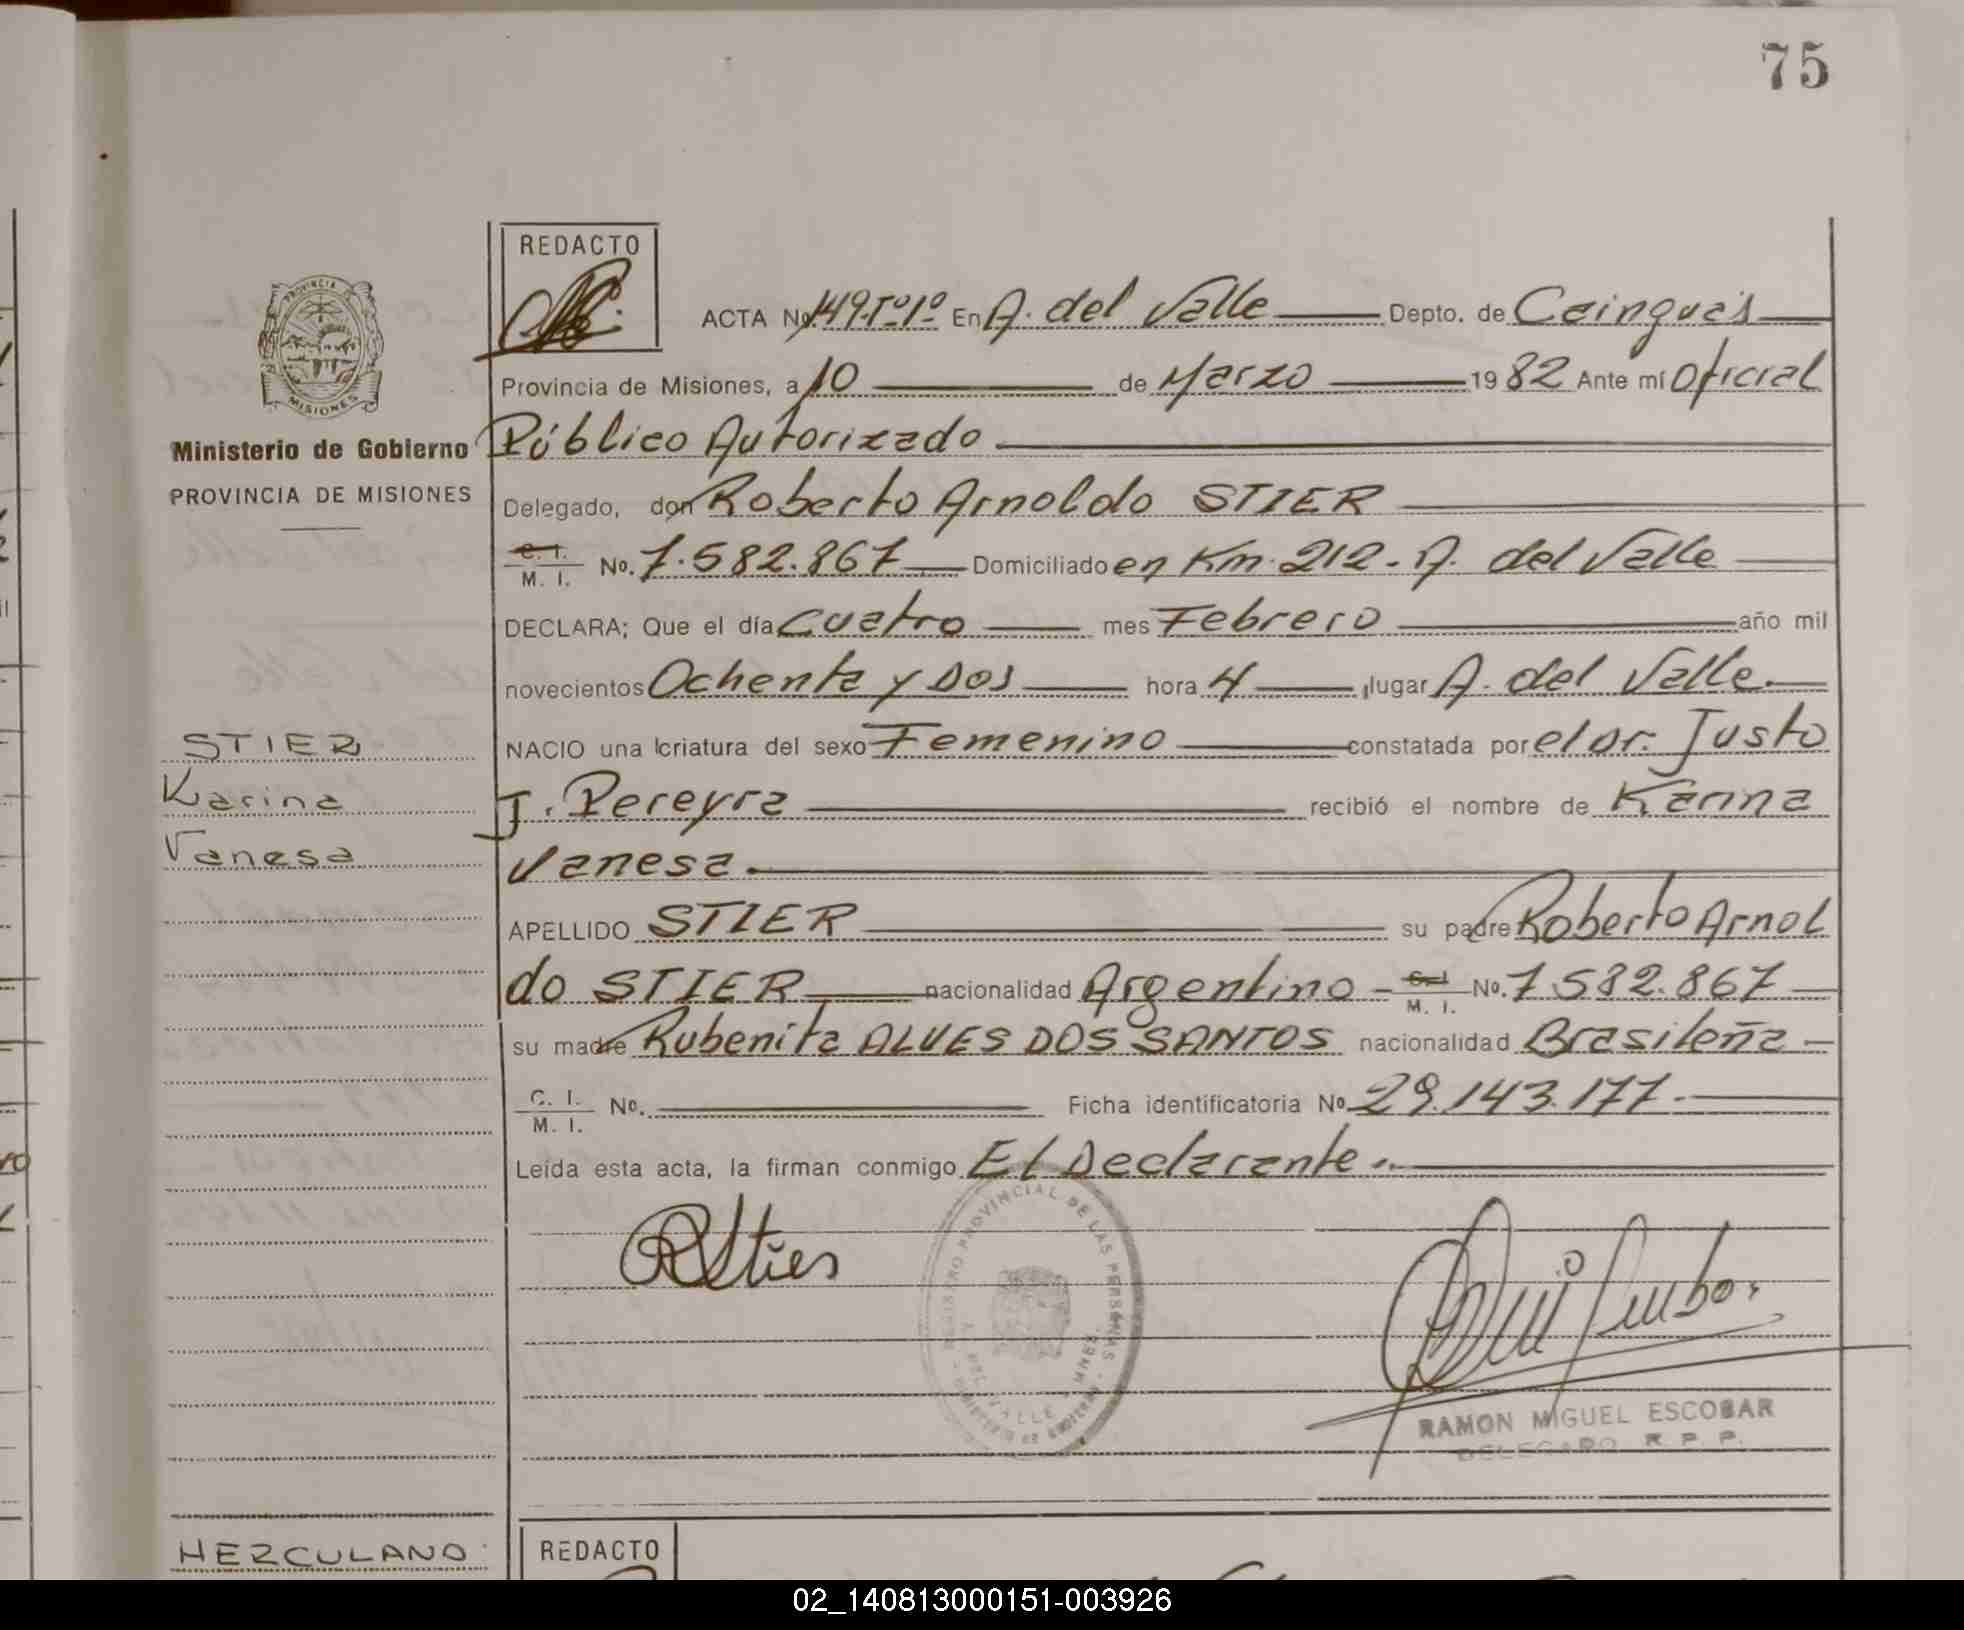 75
REDACTO
ACTA No. 149.Tº1º En A. del Valle Depto. de Cainguás
Provincia de Misiones, a 10 de Marzo 1982 Ante mí Oficial
Público Autorizado
Delegado, don Roberto Arnoldo STIER
C. I.
M. I. No. 7.582.867 Domiciliado en Km. 212 - A. del Valle
DECLARA; Que el día Cuatro mes Febrero año mil
novecientos Ochenta y Dos hora 4 lugar A. del Valle.
NACIO una criatura del sexo Femenino constatada por el Dr. Justo
J. Pereyra recibió el nombre de Karina
Vanesa.
APELLIDO STIER su padre Roberto Arnol
do STIER nacionalidad Argentino - C. I. M. I. No. 7.582.867
su madre Rubenita ALVES DOS SANTOS nacionalidad Brasileña
C. I.
M. I. No. Ficha identificatoria No. 29.143.177.
Leída esta acta, la firman conmigo El Declarante..
RStier
REGISTRO PROVINCIAL DE LAS PERSONAS
RAMON MIGUEL ESCOBAR
DELEGADO R. P. P.
PROVINCIA DE
MISIONES
Ministerio de Gobierno
PROVINCIA DE MISIONES
STIER
Karina
Vanesa
HERCULANO
REDACTO
02_140813000151-003926